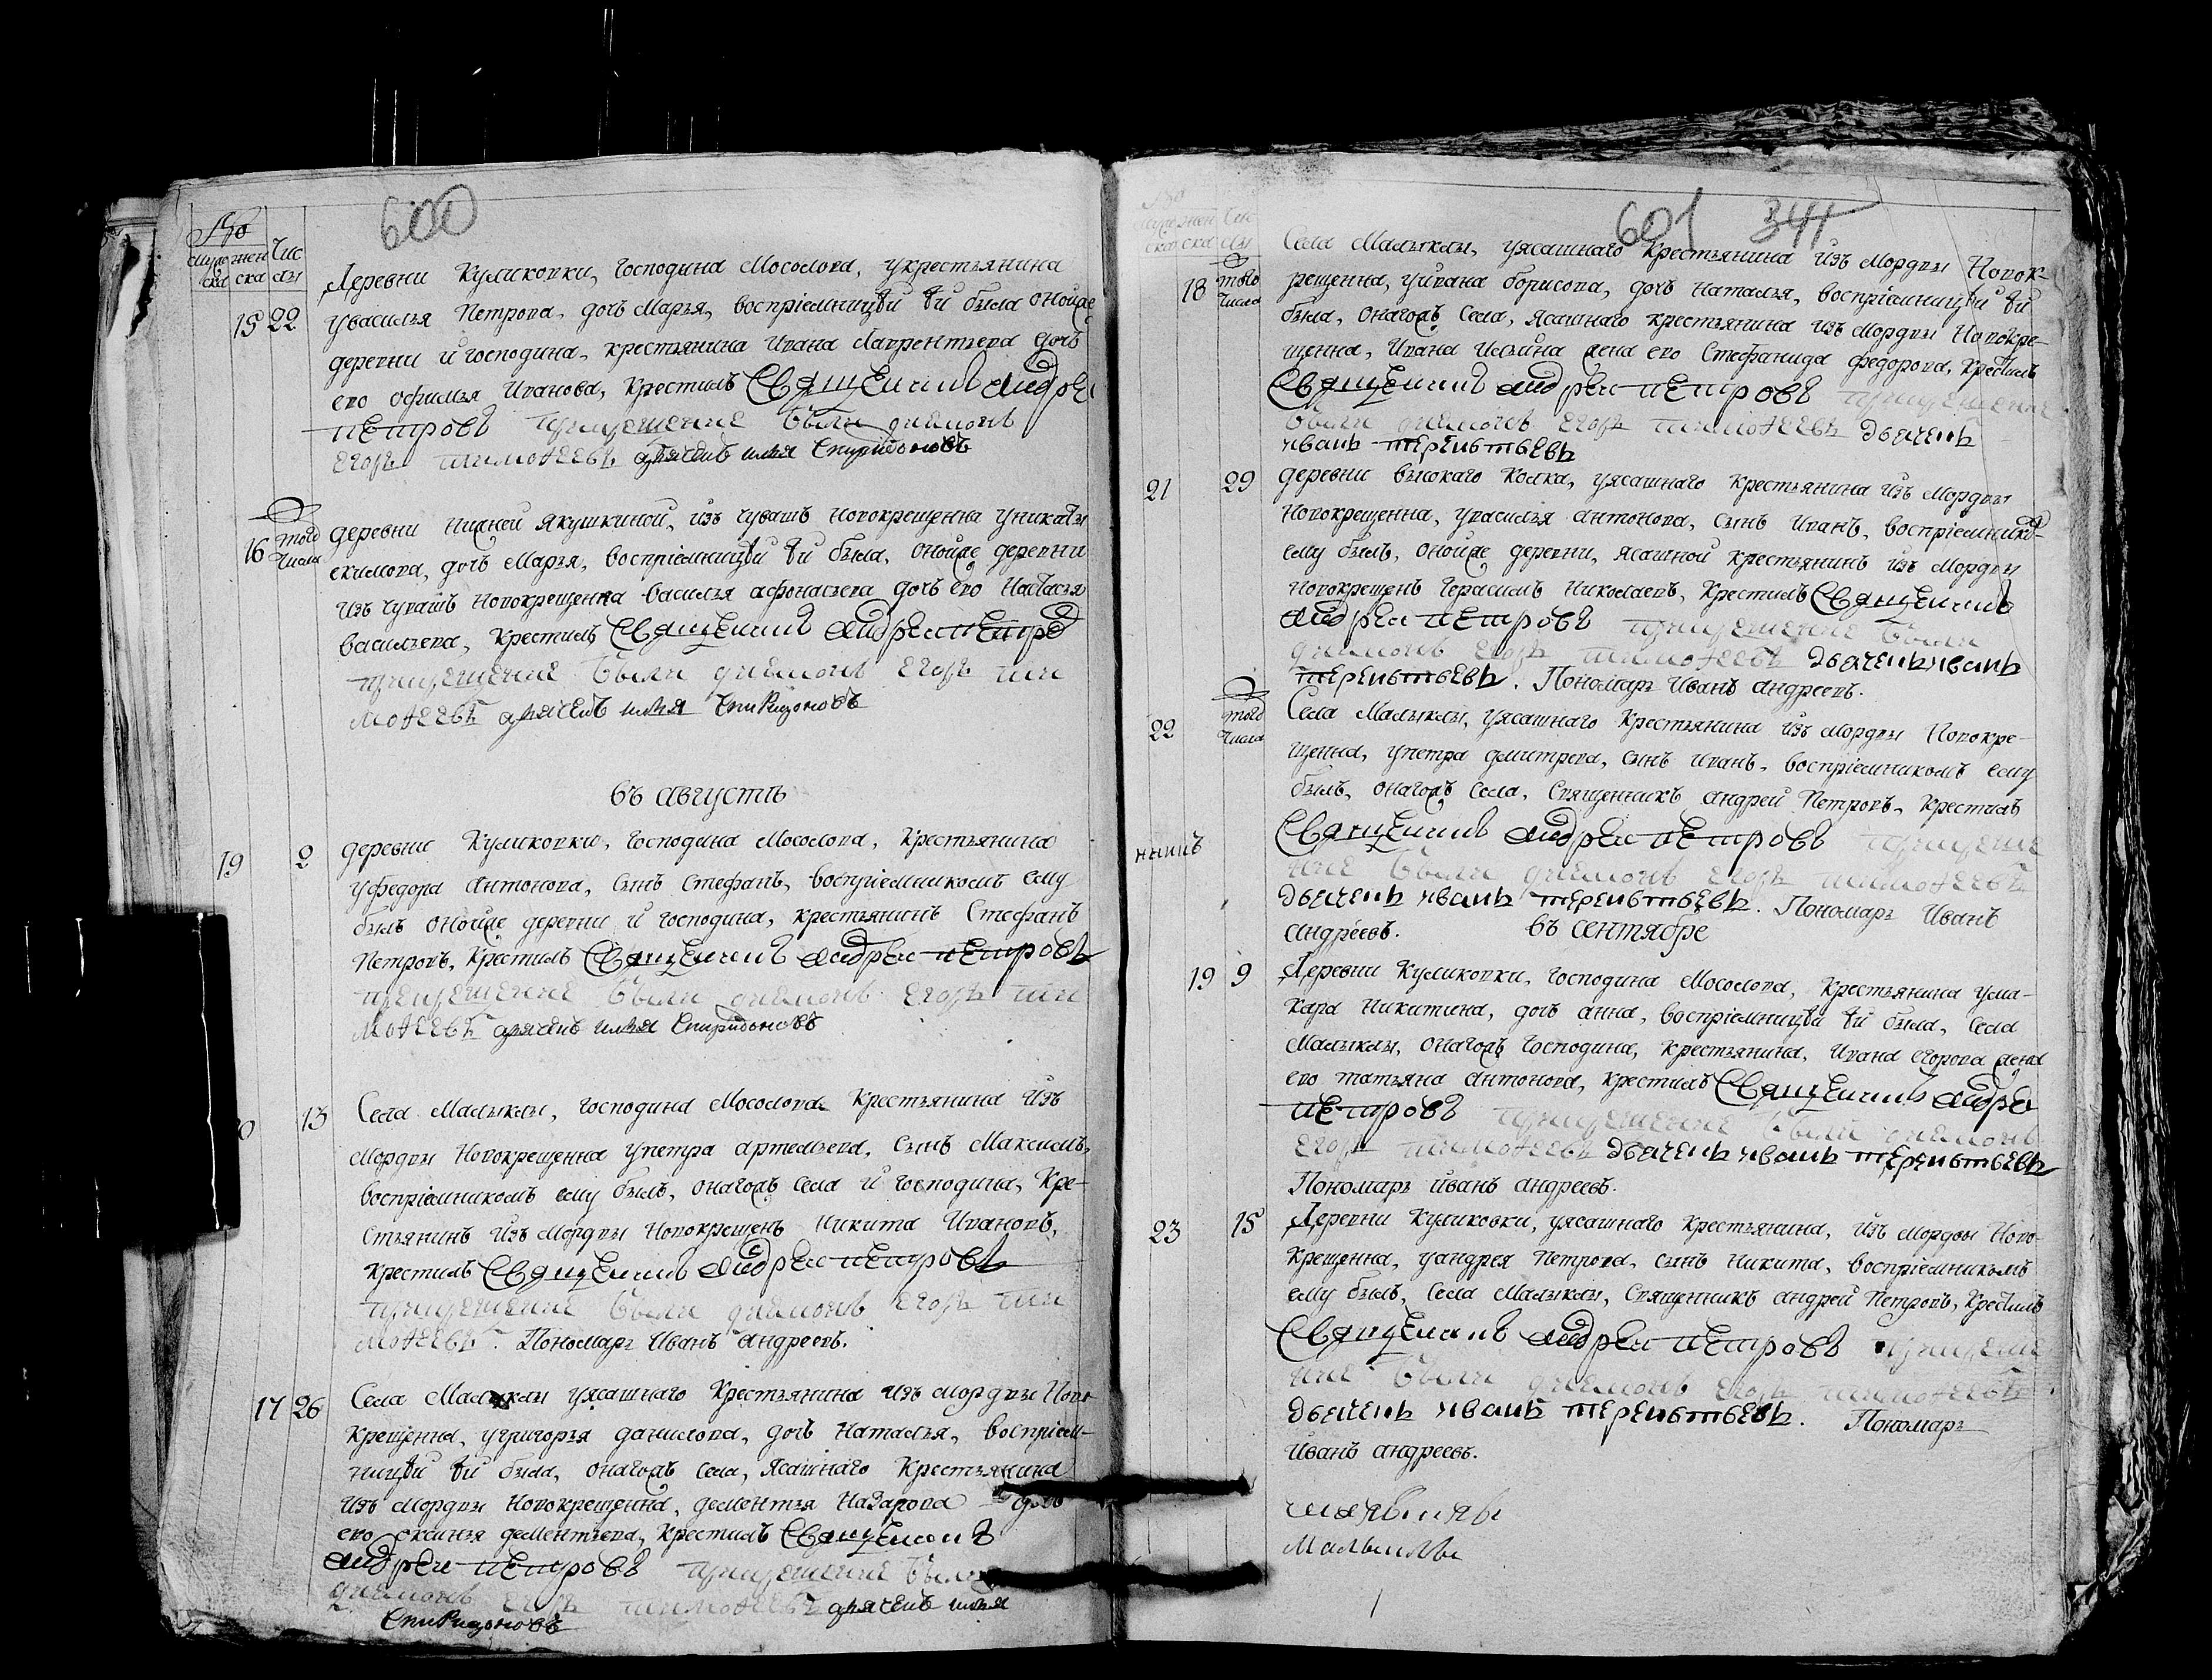 600
Чис
муже жен
ска ска лы
Деревни Куликовки, господина Мосолова, укрестьянина
15 22 уВасилья Петрова, дочь Марья, воспріемницѣй ѣй была оной же
деревни и господина, крестьянина Ивана Лаврентьева дочь
ево Офимья Иванова, крестилъ Священникъ Андреи
Петровъ прикрещение были диямонъ
Егоръ Тимофеевъ дьячекъ Илья Спиридоновъ
16 того числа деревни нижней Якушкиной, изъ чувашъ новокрещенна уникиты
екимова, дочь Марья, воспріемницѣй ѣй была, оной же деревни
изъ чувашъ новокрещенна Василья Афонасьева дочь ево Настасья
Васильева, крестилъ Священникъ Андреи Петров
прикрещение были диямонъ Егоръ Тии
мофеевъ дьячекъ Илья Спиридоновъ
въ августѣ
19 2 деревни Куликовки, господина Мосолова, крестьянина
уФедора Антонова, сынъ Стефанъ, воспріемникомъ ему
былъ оной же деревни и господина, крестьянинъ Стефанъ
Петровъ, крестилъ Священникъ Андреи Петровъ
прикрещение были диямонъ Егоръ Тии
мофеевъ дьячекъ Илья Спиридоновъ
0 13 Села Малыклы, господина Мосолова крестьянина изъ
мордвы новокрещенна уПетра Артемьева, сынъ Максимъ,
воспріемникомъ ему былъ, онагожъ села и господина, кре-
стьянинъ изъ мордвы новокрещенъ Никита Ивановъ,
крестилъ Священникъ Андреи Петровъ
прикрещение были диямонъ Егоръ Тии
мофеевъ. Пономарь Иванъ Андреевъ.
17 26 Села Малыклы уясашнаго крестьянина изъ мордвы ново
крещенна, уГригорья Данилова, дочь Наталья, воспріем-
ницѣй ѣй была, онагожъ села, ясашнаго крестьянина
изъ мордвы новокрещенна, Дементья Назарова дочь
ево Оксинья Дементьева, крестилъ Священникъ
Андреи Петровъ прикрещение были
диямонъ Егоръ Тимофеевъ дьячекъ Илья
Спиридоновъ
601 344
Чис
ска ска лы
Села Малыклы, уясашнаго крестьянина изъ мордвы новок-
18 того числа рещенна, уИвана Борисова, дочь Наталья, воспріемницѣй ѣй
была, онагожъ села, ясашнаго крестьянина изъ мордвы новокре-
щенна, Ивана Ильина жена ево Стефанида Федорова, крестилъ
Священникъ Андреи Петровъ прикрещение
были диямонъ Егоръ Тимофеевъ дьячекъ
Иванъ Терентьевъ
21 29 деревни высокаго колка, уясашнаго крестьянина изъ мордвы
новокрещенна, уВасилья Антонова, сынъ Иванъ, воспріемнико
ему былъ, оной же деревни, ясашной крестьянинъ изъ мордвы
новокрещенъ Герасимъ Николаевъ, крестилъ Священникъ
Андреи Петровъ прикрещение были
диямонъ Егоръ Тимофеевъ дьячекъ Иванъ
Терентьевъ. Пономарь Иванъ Андреевъ.
22 того числа Села Малыклы, уясашнаго крестьянина изъ мордвы новокре-
щенна, уПетра Дмитрева, сынъ Иванъ, воспріемникомъ ему
былъ, онагожъ села, Священникъ Андрей Петровъ, крестилъ
Священникъ Андреи Петровъ прикреще
ние были диямонъ Егоръ Тимофеевъ
дьячекъ Иванъ Терентьевъ. Пономарь Иванъ
Андреевъ. въ сентябре
19 9 Деревни Куликовки, господина Мосолова, крестьянина уМа-
кара Никитина, дочь Анна, воспріемницѣй ѣй была, села
Малыклы, онагожъ господина, крестьянина, Ивана Егорова жена
ево Татьяна Антонова, крестилъ Священникъ Андре
Петровъ прикрещение были диямонъ
Егоръ Тимофеевъ дьячекъ Иванъ Терентьевъ
Пономарь Иванъ Андреевъ.
23 15 Деревни Куликовки, уясашнаго крестьянина, изъ мордвы ново-
крещенна, уАндрея Петрова, сынъ Никита, воспріемникомъ
ему былъ, села Малыклы, Священникъ Андрей Петровъ, крестилъ
Священникъ Андреи Петровъ прикреще
ние были диямонъ Егоръ Тимофеевъ
дьячекъ Иванъ Терентьевъ. Пономарь
Иванъ Андреевъ.
Малыклы